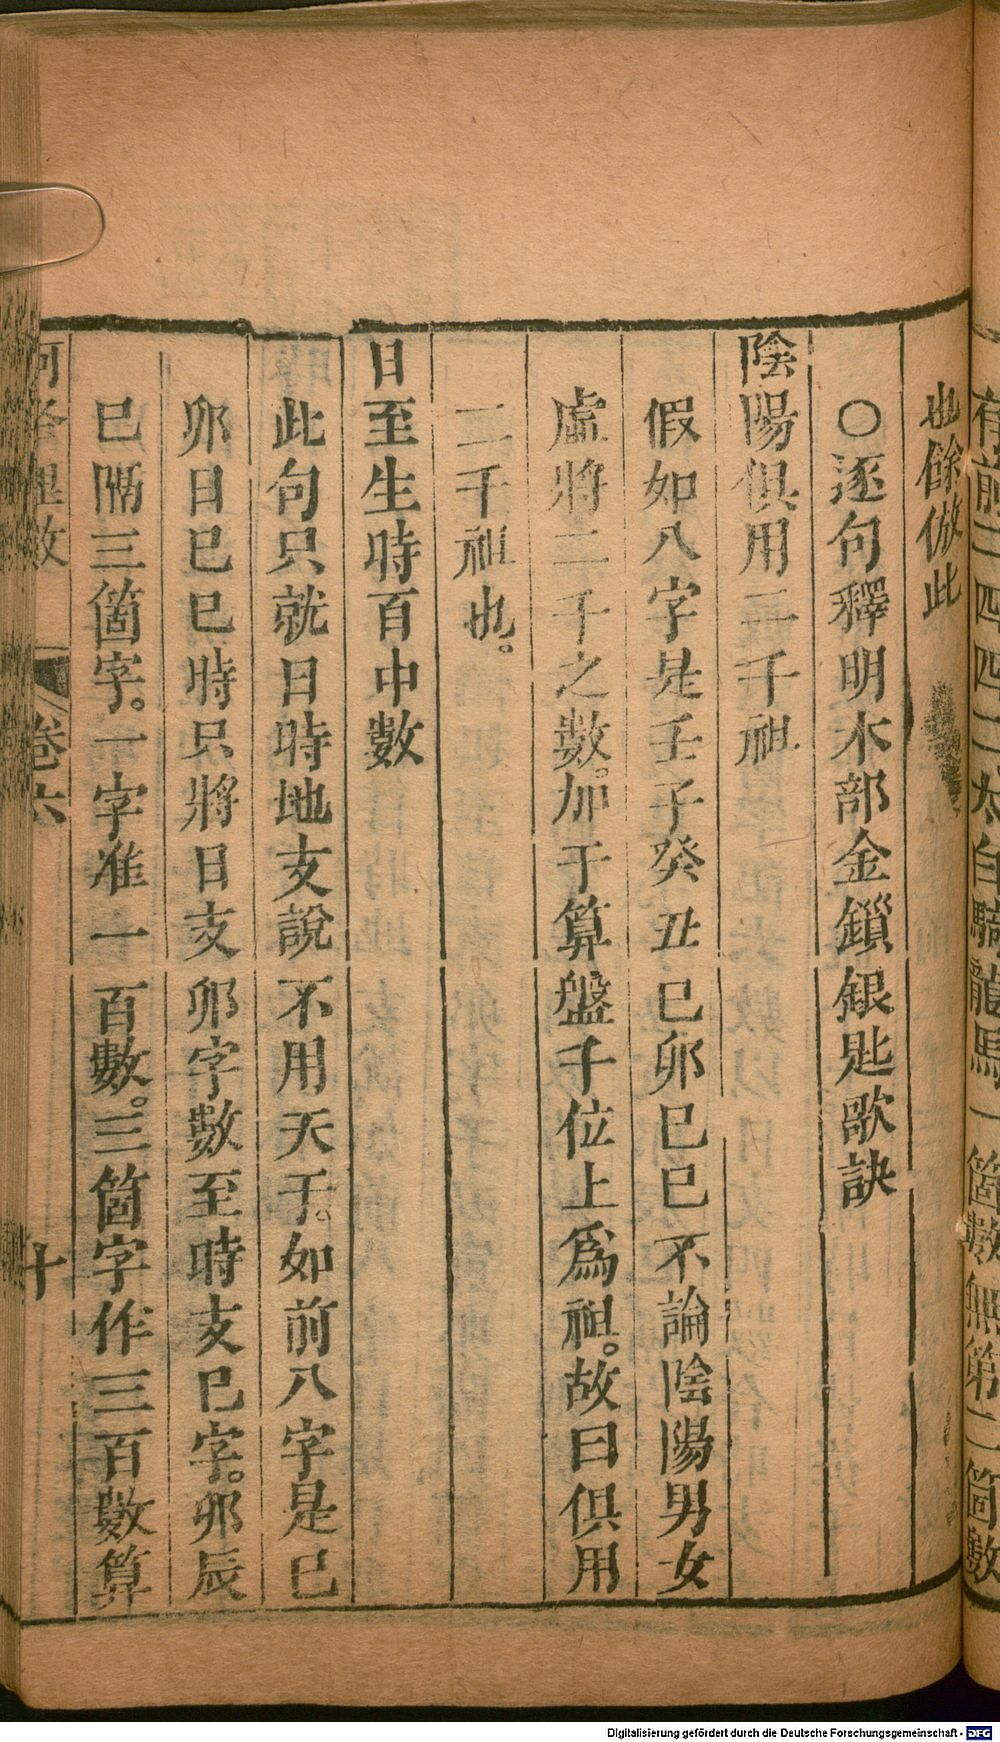 有前三四四二太白騎龍馬一箇數無第二箇數
也餘倣此
○逐句釋明木部金鎖銀匙歌訣
陰陽俱用二千祖
假如八字是壬子癸丑巳卯巳巳不論陰陽男女
虛將二千之數。加于算盤千位上爲祖。故曰俱用
二千祖也。
日至生時百中數
此句只就日時地支說不用天于。如前八字是巳
卯日巳巳時只將日支卯字數至時支巳字。卯辰
巳隔三箇字。一字准一百數。三箇字作三百數算
河洛理數 卷六 十
Digitalisierung gefördert durch die Deutsche Forschungsgemeinschaft - DFG